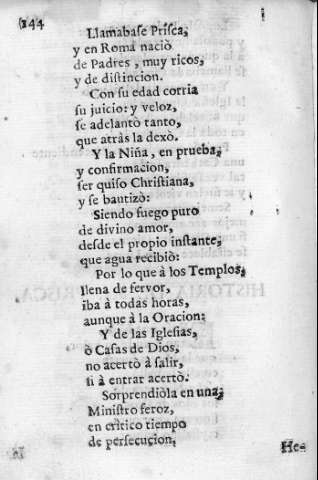 (244
Llamabase Prisca,
y en Roma naciò
de Padres, muy ricos,
y de distincion.
Con su edad corria
su juicio: y veloz,
se adelantò tanto,
que atràs la dexò.
Y la Niña, en prueba,
y confirmacion,
ser quiso Christiana,
y se bautizò:
Siendo fuego puro
de divino amor,
desde el propio instante,
que agua recibiò:
Por lo que à los Templos,
llena de fervor,
iba à todas horas,
aunque à la Oracion:
Y de las Iglesias,
ò Casas de Dios,
no acertò à salir,
si à entrar acertò.
Sorprendiòla en una,
Ministro feroz,
en critico tiempo
de persecucion,
Hes